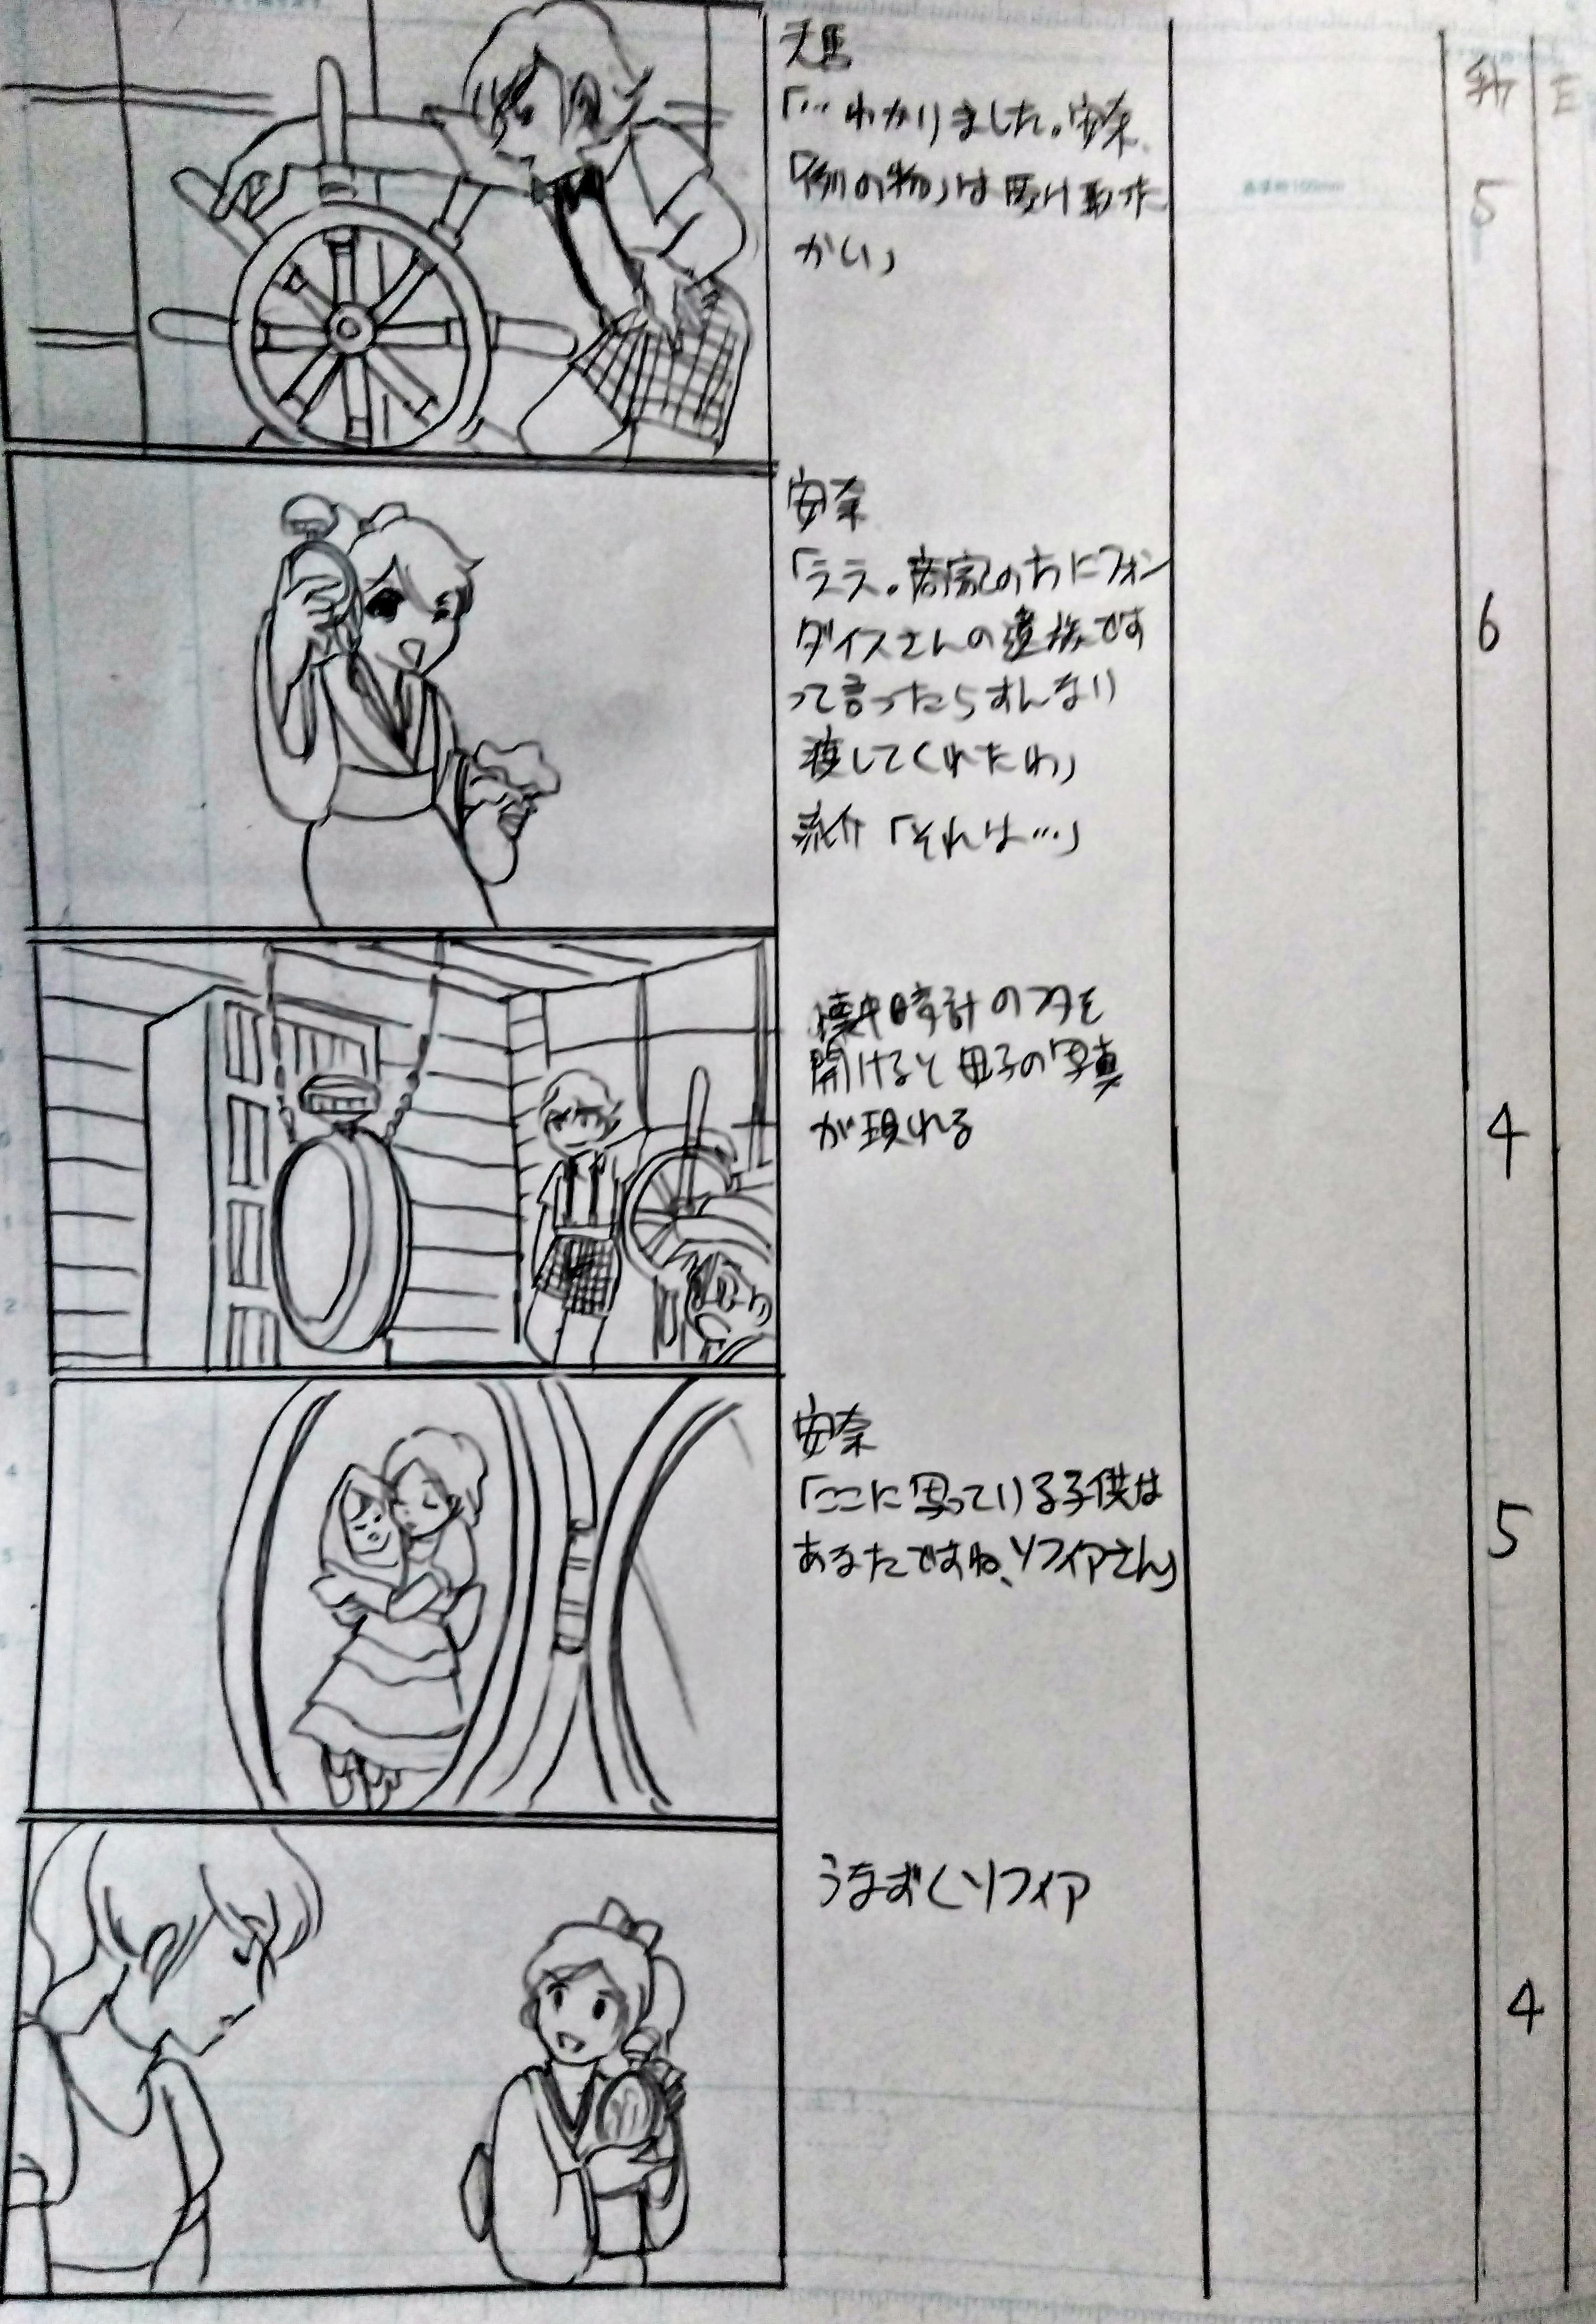 天馬
「…わかりました。安奈、
「例の物」は受け取った
かい」
5
安奈
「ええ。商家の方にフォン
ダイスさんの遺族です
って言ったらすんなり
渡してくれたわ」
流介「それは…」
6
懐中時計のフタを
開けると母子の写真
が現れる
4
安奈
「ここに写っている子供は
あなたですね、ソフィアさん」
5
うなずくソフィア
4